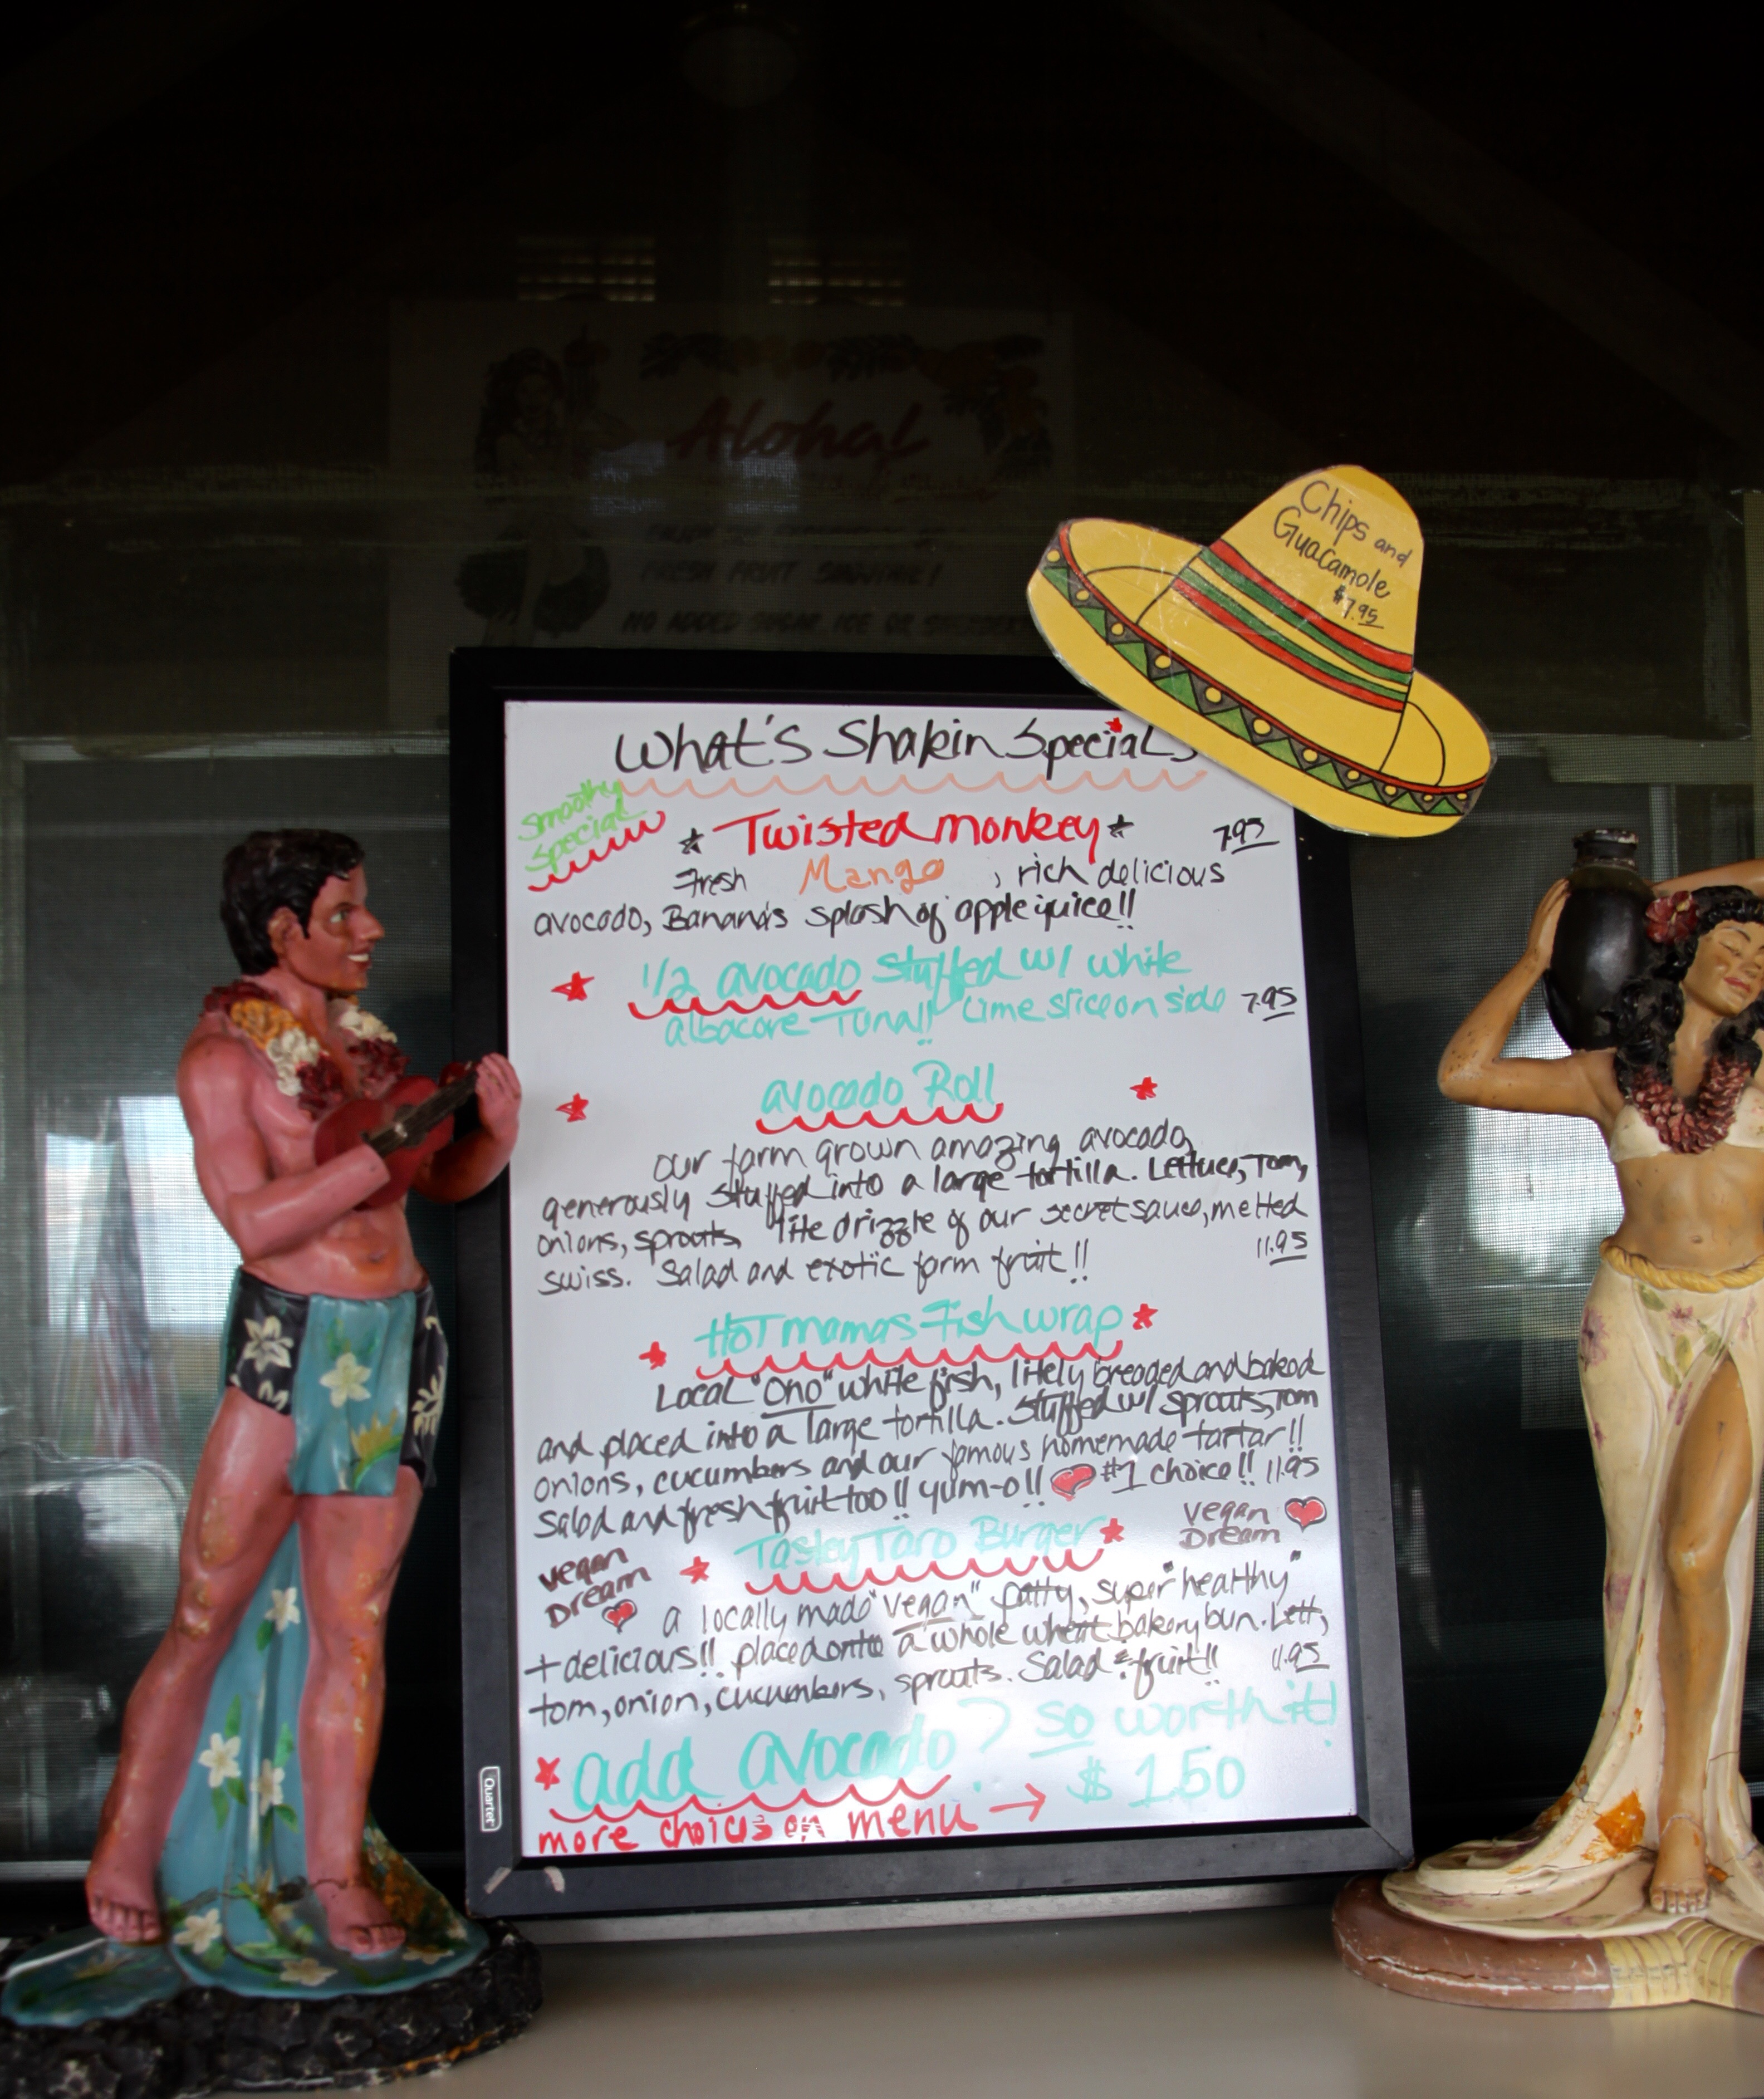 Aloha!
FRESH FRUIT SMOOTHIE!
NO ADDED SUGAR, ICE OR SHERBERT
Chips and
Guacamole
$7.95
What's Shakin Specials
Smoothy
Special
Twisted monkey 7.95
Fresh Mango, rich delicious
avocado, Banana's splash of apple juice!!
1/2 avocado stuffed w/ white
albacore Tuna!! Lime slice on side 7.95
avocado Roll
our farm grown amazing avocado,
generously stuffed into a large tortilla. Lettuce, Tom,
onions, sprouts, lite drizzle of our secret sauce, melted
swiss. Salad and exotic farm fruit!! 11.95
HOT mamas Fish wrap
Local "Ono" white fish, litely breaded and baked
and placed into a large tortilla. Stuffed w/ sprouts, Tom
onions, cucumbers and our famous homemade tartar!!
Salad and fresh fruit too!! yum-o!! #1 choice!! 11.95
vegan
Dream
Tastey Taro Burger
vegan
Dream
a locally made "vegan" patty, super "healthy"
+ delicious!! placed onto a whole wheat bakery bun. Lett,
tom, onion, cucumbers, sprouts. Salad & fruit!! 11.95
add avocado? so worth it!
$1.50
more choices on menu →
Quartet